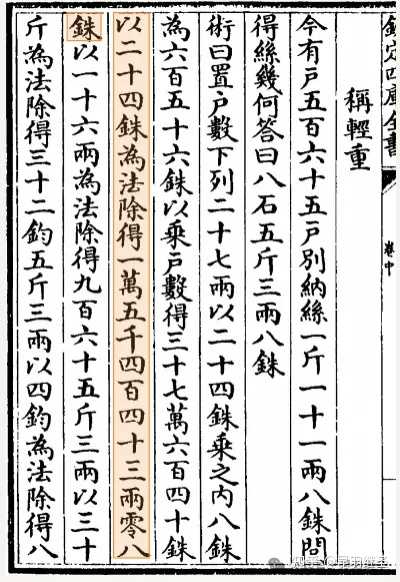 欽定四庫全書
卷中
稱輕重
今有戶五百六十五戶別納絲一斤一十一兩八銖問
得絲幾何答曰八石五斤三兩八銖
術曰置戶數下列二十七兩以二十四銖乘之内八銖
為六百五十六銖以乘戶數得三十七萬六百四十銖
以二十四銖為法除得一萬五千四百四十三兩零八
銖以一十六兩為法除得九百六十五斤三兩以三十
斤為法除得三十二鈞五斤三兩以四鈞為法除得八